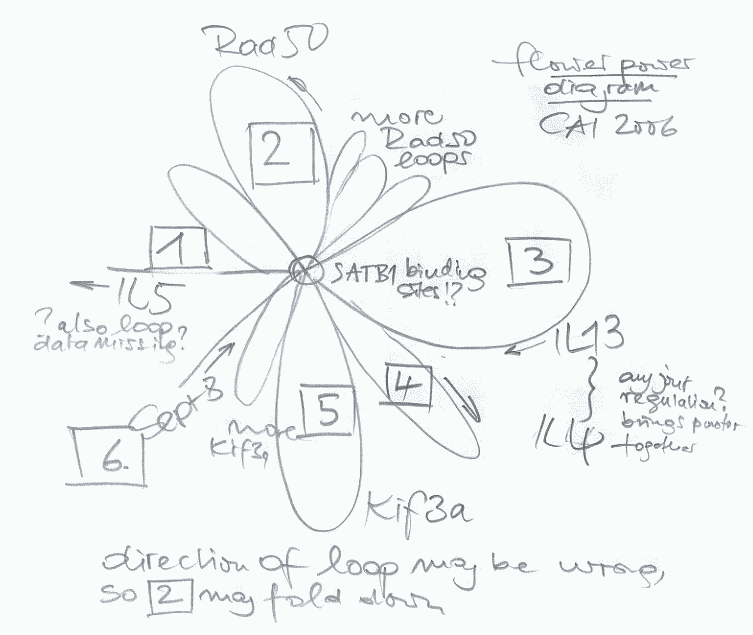 Rad50
flower power
diagram
CAI 2006
more
Rad50
loops
2
1
3
SATB1 binding
sites!?
IL5
? also loop
data missing?
IL13
4
any joint
regulation?
brings
together
IL4
Sept8
more
Kif3a
5
6.
Kif3a
direction of loop may be wrong,
so 2 may fold down